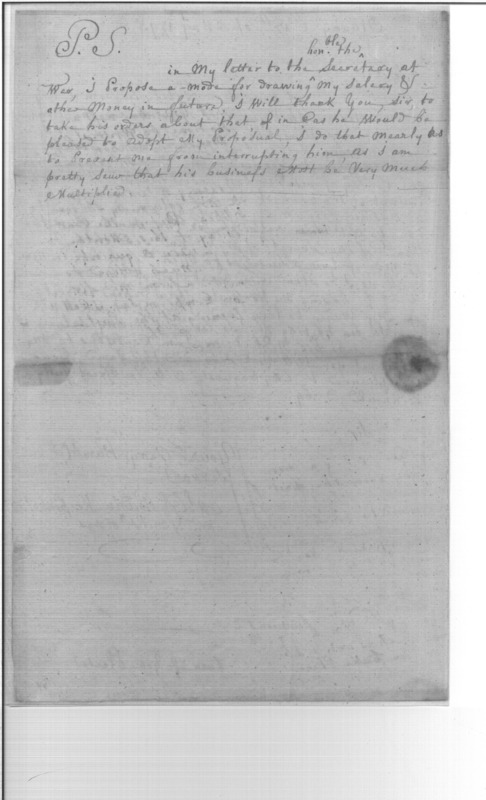 P. S.
hon.ble the
in My letter to the Secretary at
War, I Propose a mode for drawing My Salary &
other Money in future, I Will thank You, Sir, to
take his orders about that & in Cas he Would be
pleased to Adopt My Proposial, I do that mearly
to Prevent me from interrupting him, As I am
pretty seur that his business Must be Very Much
Multiplied